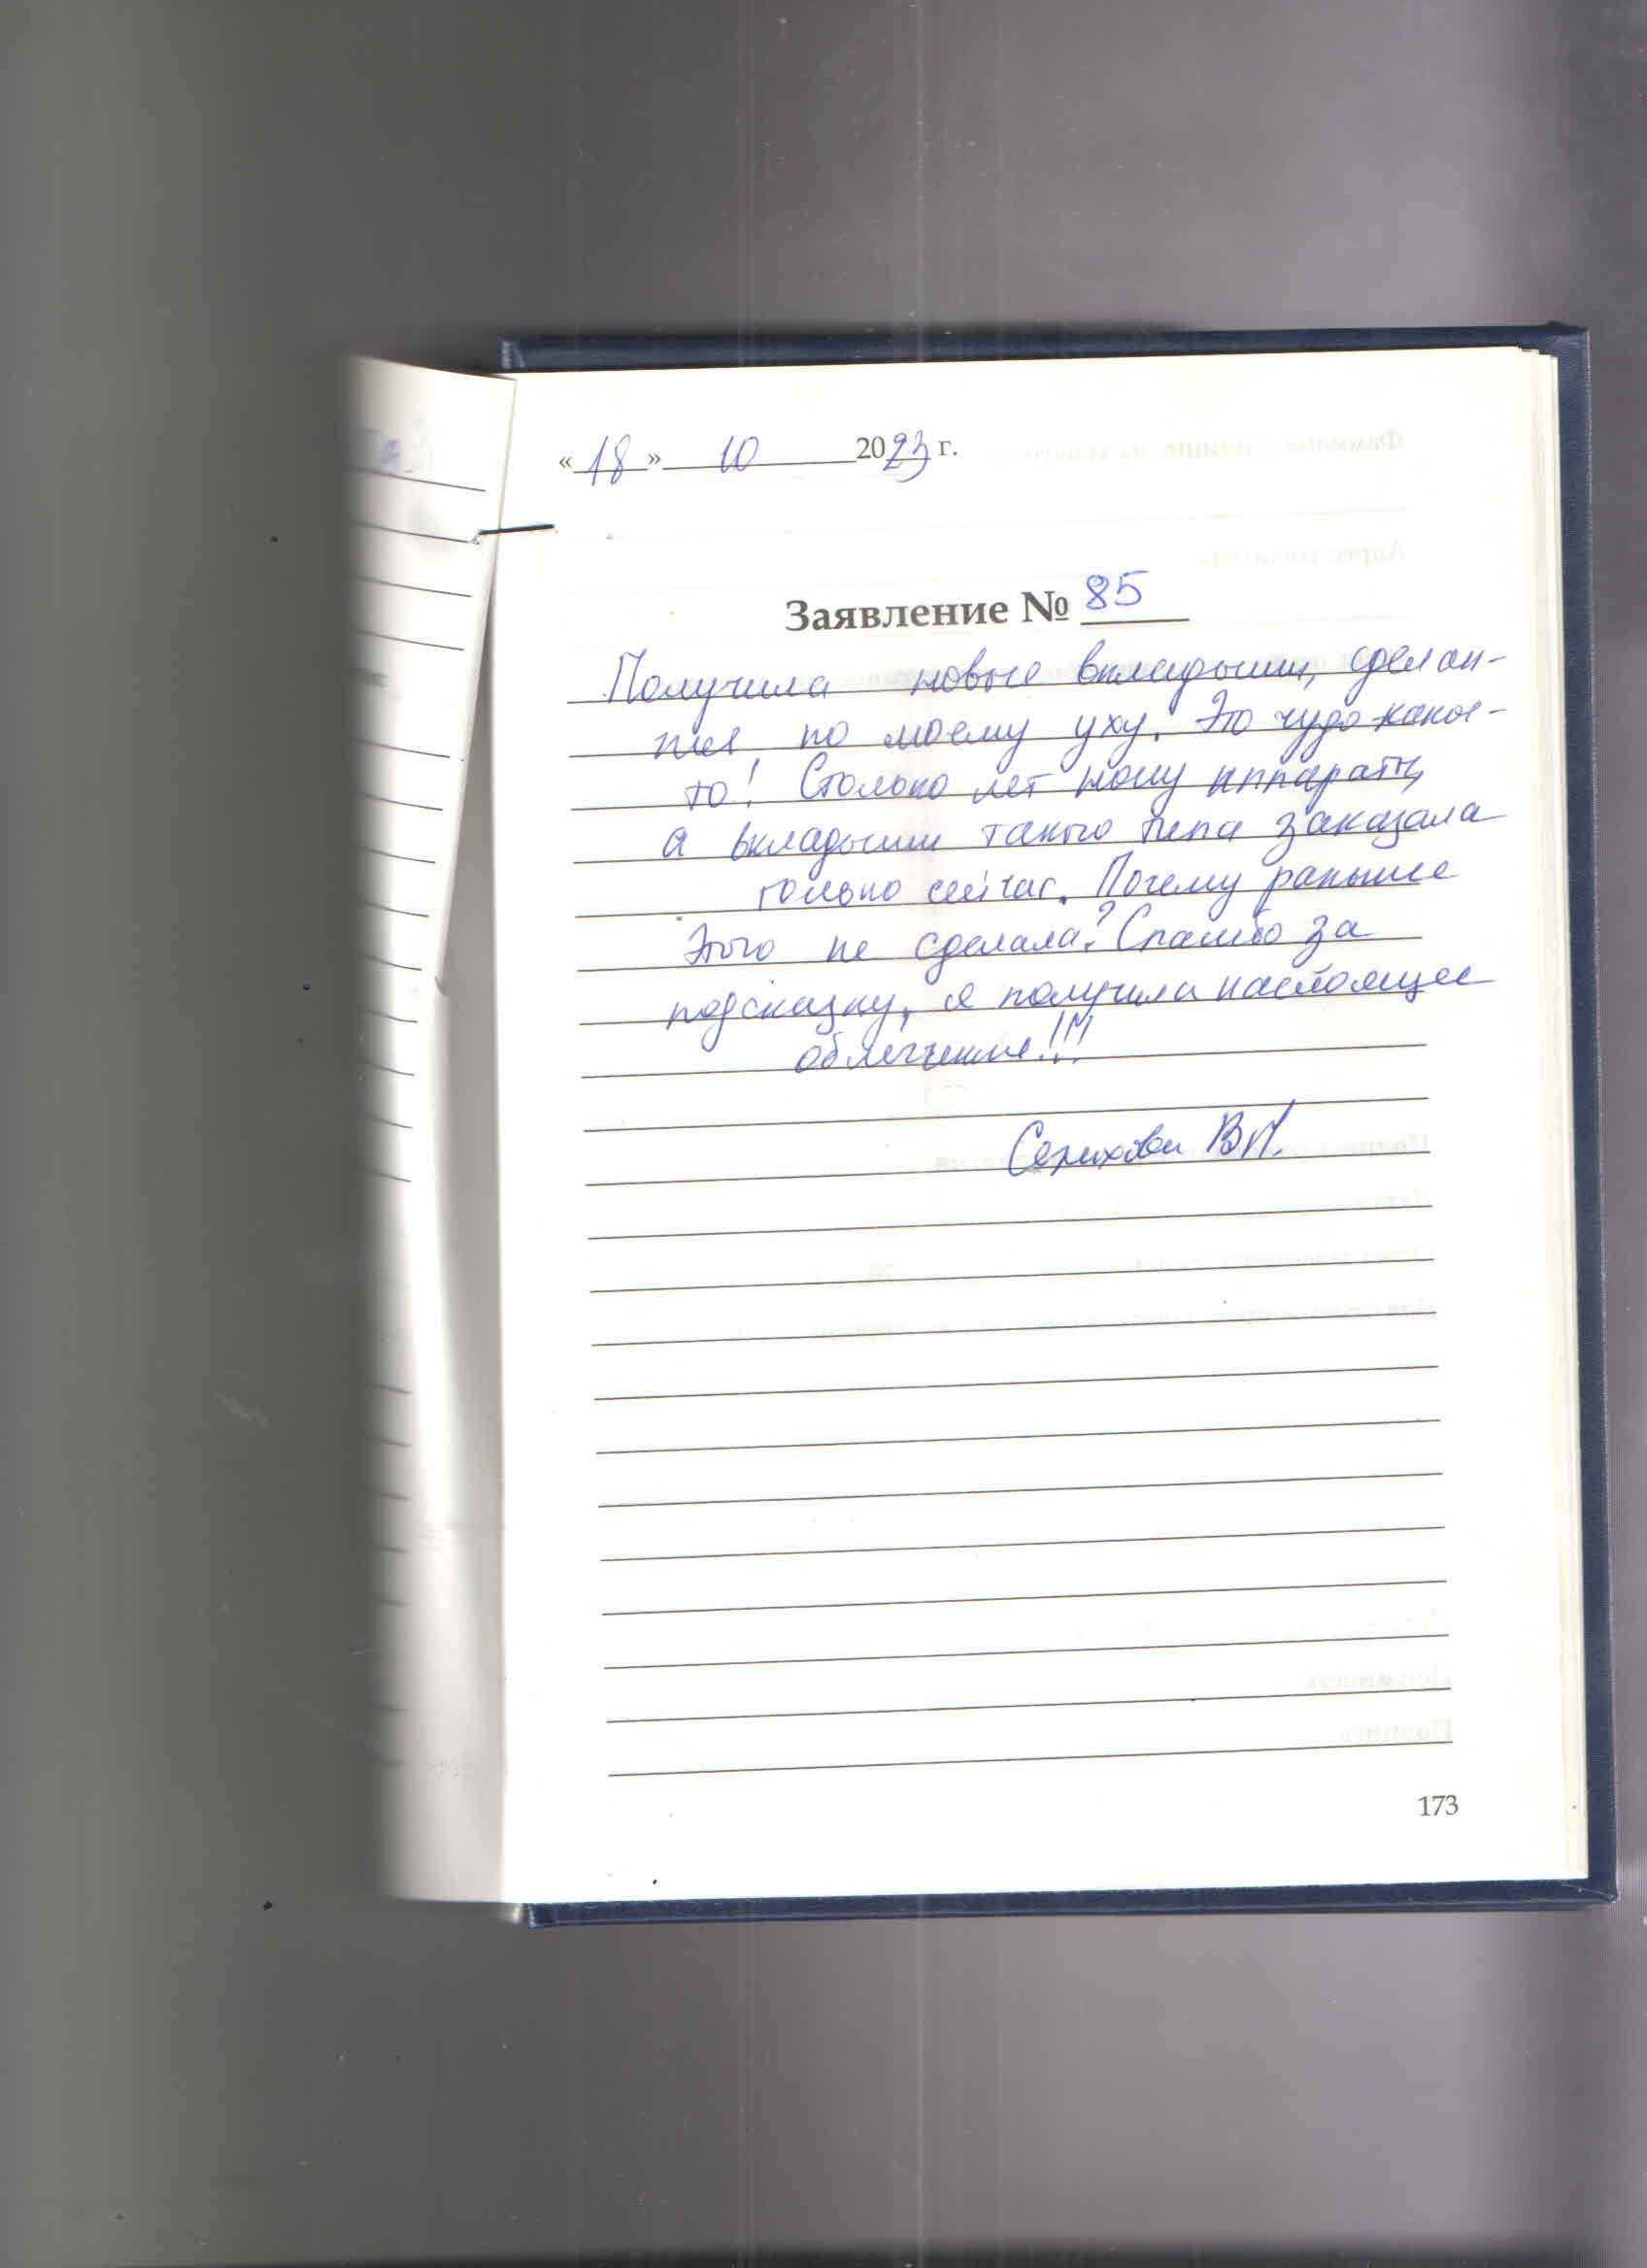 «18» 10 2023 г.
Заявление № 85
Получила новые вкладыши, сделан-
ные по моему уху. Это чудо какое-
то! Столько лет ношу аппараты,
а вкладыши такого типа заказала
только сейчас. Почему раньше
этого не сделала? Спасибо за
подсказку, я получила настоящее
облегчение!!!
В.И.
173